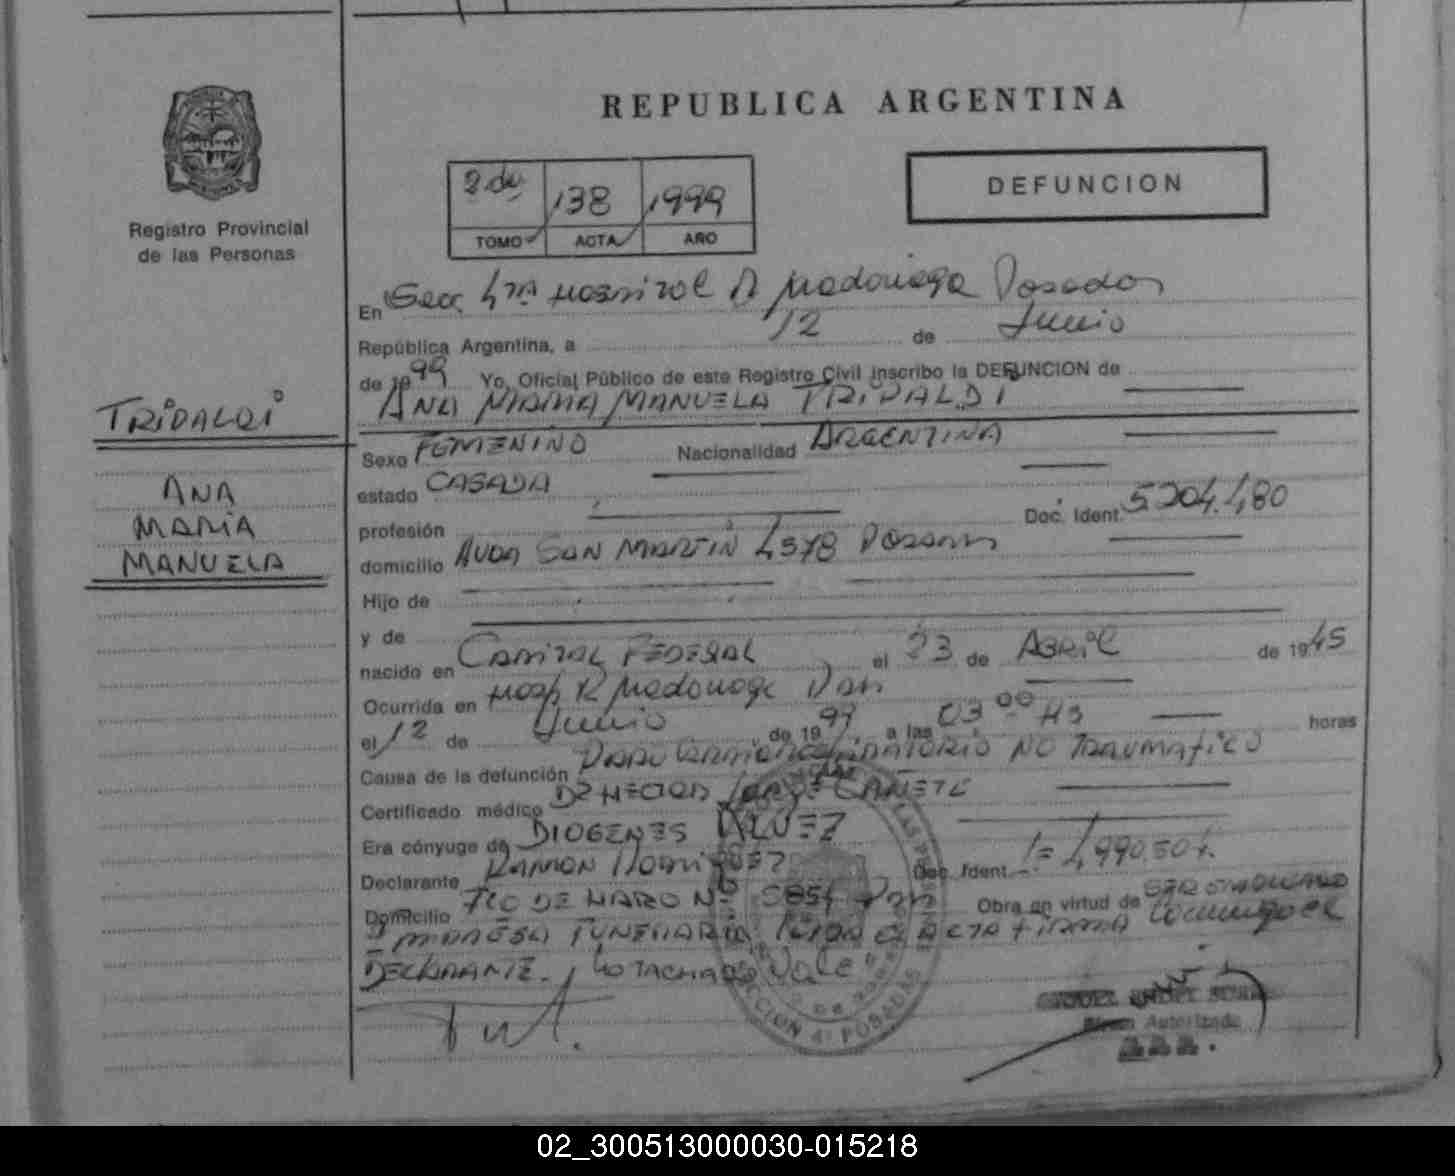 REPUBLICA ARGENTINA
Registro Provincial
de las Personas
2do 138 1999
TOMO ACTA AÑO
DEFUNCION
En Secc 4TA Hospital R Madariaga Posadas
República Argentina, a 12 de Junio
de 1999 Yo, Oficial Público de este Registro Civil inscribo la DEFUNCION de
ANA MARIA MANUELA TRIPALDI
TRIPALDI
ANA
MARIA
MANUELA
Sexo FEMENINO Nacionalidad ARGENTINA
estado CASADA
profesión Doc. Ident. 5.204.480
domicilio AVDA SAN MARTIN 4578 Posadas
Hijo de
y de
nacido en CAPITAL FEDERAL el 23 de ABRIL de 1945
Ocurrida en Hosp R Madariaga Pos
el 12 de Junio de 1999 a las 03 00 Hs horas
Causa de la defunción PARO CARDIORESPIRATORIO NO TRAUMATICO
Certificado médico DR HECTOR JORGE CAÑETE
Era cónyuge de DIOGENES ALVEZ
Declarante RAMON Doc. Ident.
Domicilio DE HARO Nº Pos Obra en virtud de
EMPRESA FUNERARIA ACTA FIRMA el
DECLARANTE. Lo TACHADO Vale
SECCION 4ª POSADAS
Firma Autorizada
02_300513000030-015218